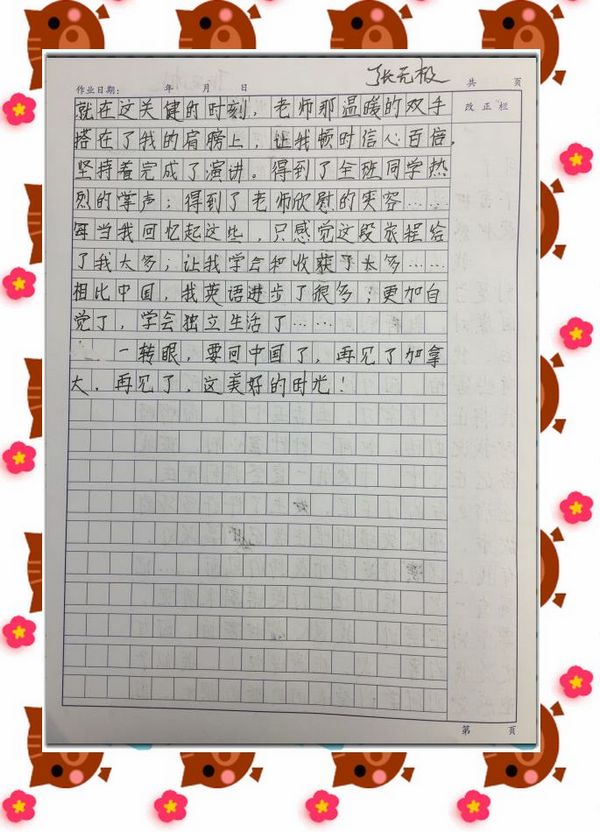 张无极
作业日期： 年 月 日 共 页
改正栏
就在这关健的时刻，老师那温暖的双手
搭在了我的肩膀上，让我顿时信心百倍，
坚持着完成了演讲。得到了全班同学热
烈的掌声；得到了老师欣慰的笑容……
每当我回忆起这些，只感觉这段旅程给
了我太多；让我学会和收获了太多……
相比中国，我英语进步了很多；更加自
觉了，学会独立生活了……
一转眼，要回中国了，再见了加拿
大，再见了，这美好的时光！
第 页